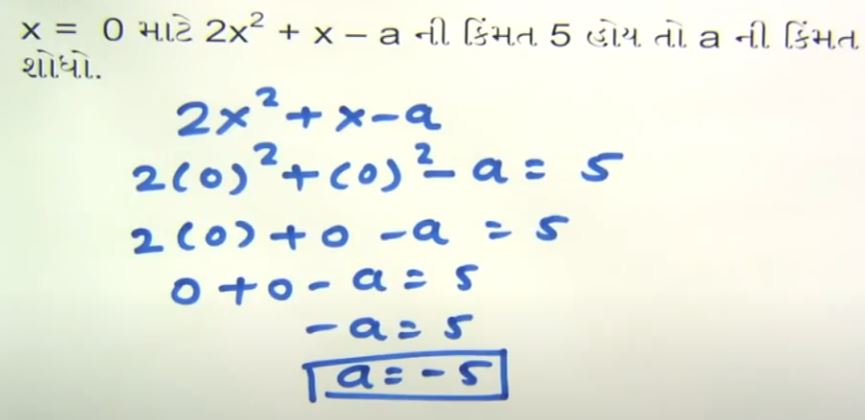 x = 0 માટે 2x² + x – a ની કિંમત 5 હોય તો a ની કિંમત
શોધો.
2x² + x - a
2(0)² + (0)² - a = 5
2(0) + 0 - a = 5
0 + 0 - a = 5
- a = 5
a = - 5